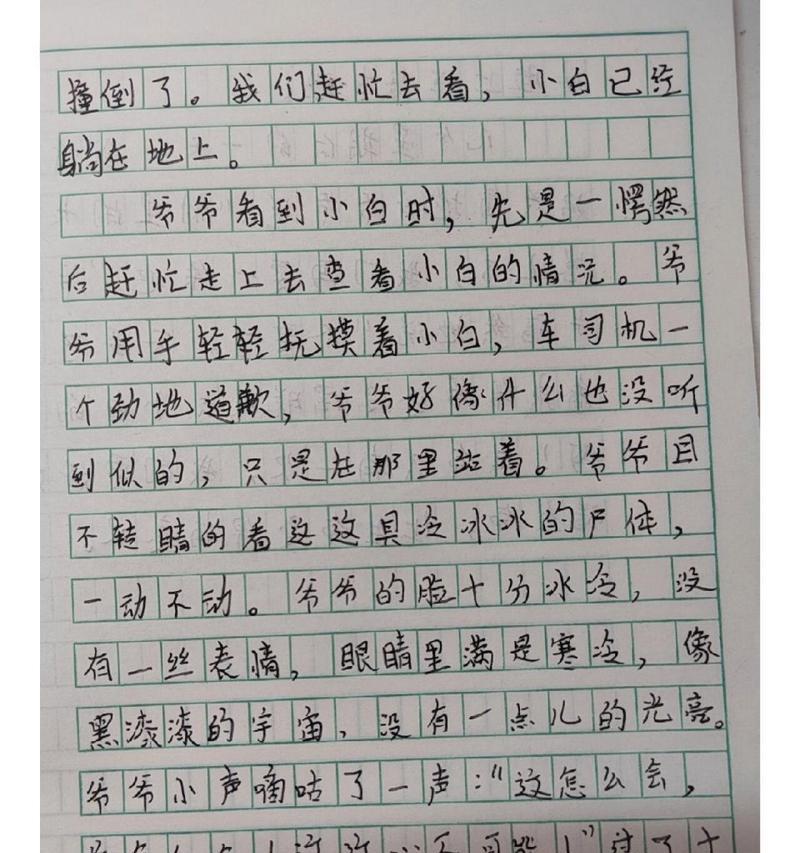 撞倒了。我们赶忙去看，小白已经
躺在地上。
爷爷看到小白时，先是一愕然
后赶忙走上去查看小白的情况。爷
爷用手轻轻抚摸着小白，车司机一
个劲地道歉，爷爷好像什么也没听
到似的，只是在那里站着。爷爷目
不转睛的看这这具冷冰冰的尸体，
一动不动。爷爷的脸十分冰冷，没
有一丝表情，眼睛里满是寒冷，像
黑漆漆的宇宙，没有一点儿的光亮。
爷爷小声嘀咕了一声："这怎么会，
"过了十